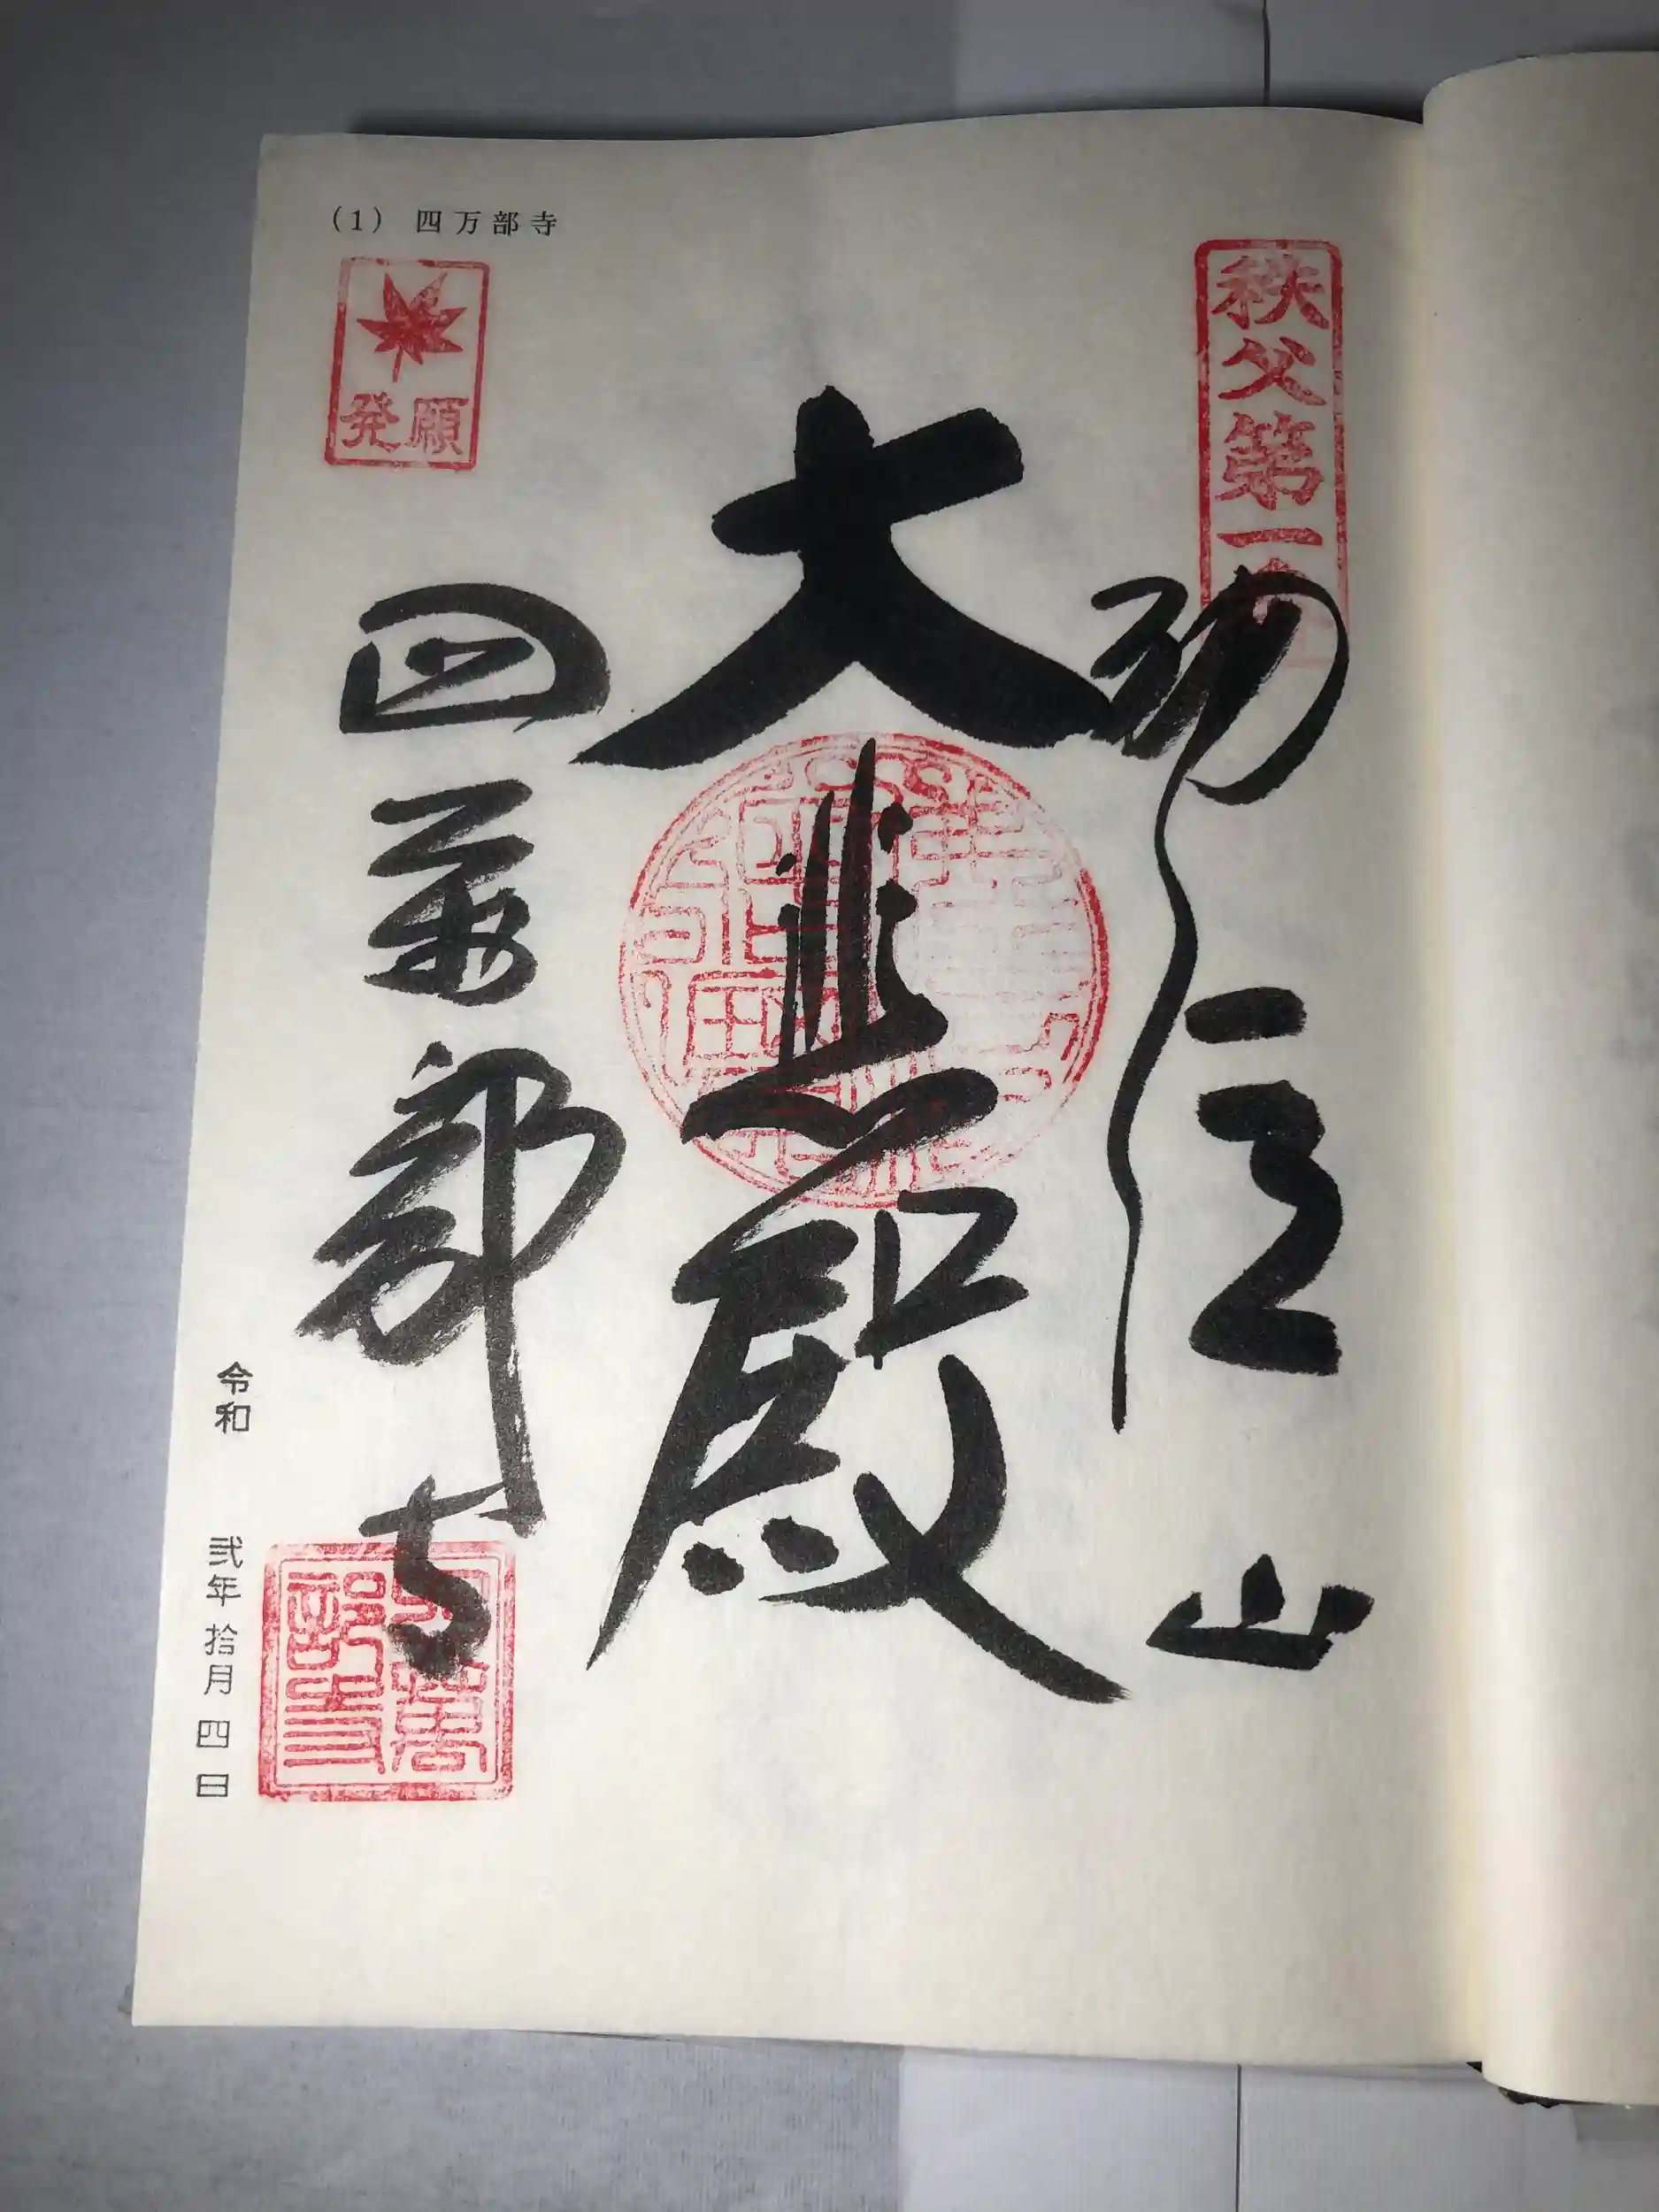 (1) 四万部寺
秩父第一
発願
大悲殿
山
四萬部寺
四萬部寺
令和 弐年 拾月 四日